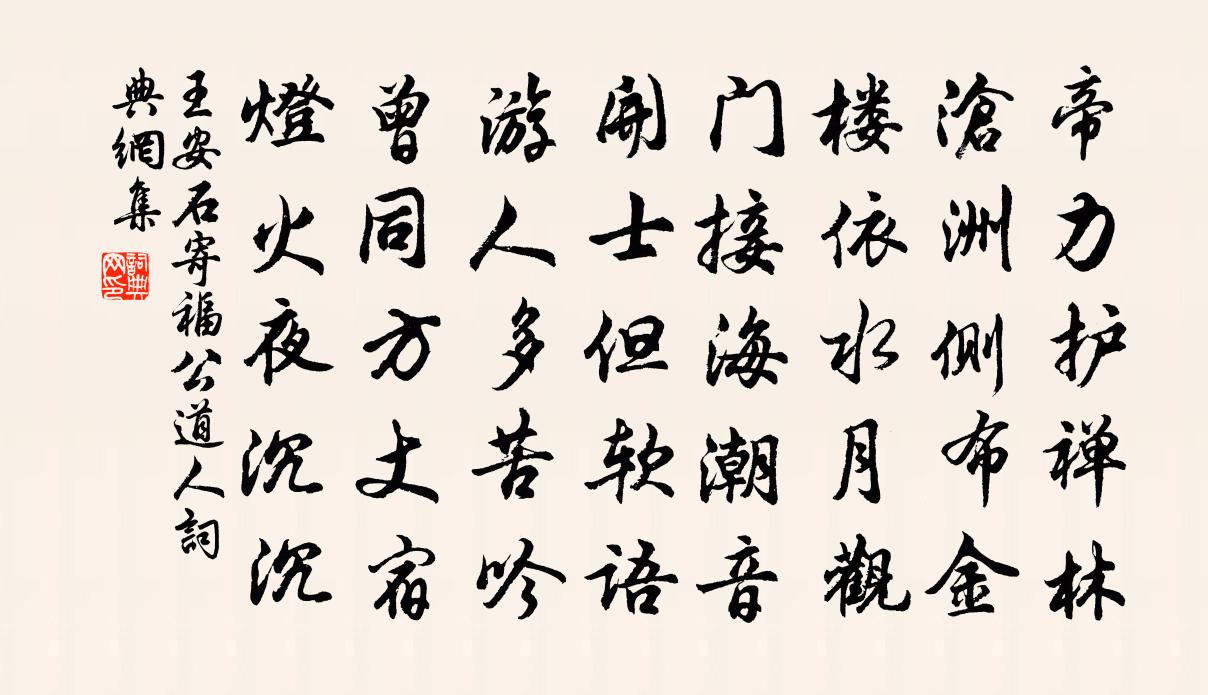 帝力护禅林
滄洲侧布金
楼依水月觀
门接海潮音
開士但软语
游人多苦吟
曾同方丈宿
燈火夜沉沉
王安石寄福公道人詞
典網集
詞典
网印